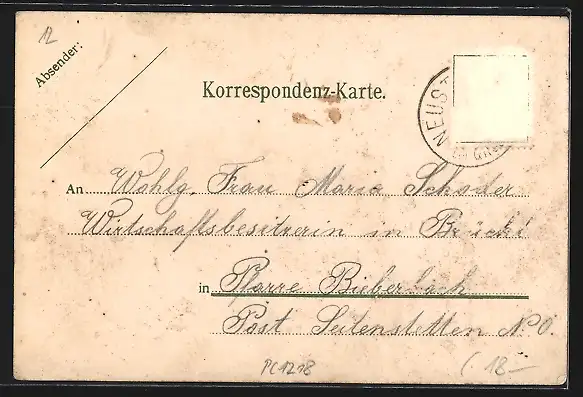 12
Absender:
Korrespondenz-Karte.
NEUST
An Wohlg. Frau Maria Schoder
Wirtschaftsbesitzerin in Brückl
in Pfarre Bieberbach
Post Seitenstetten N. Ö.
PC1218
(18-